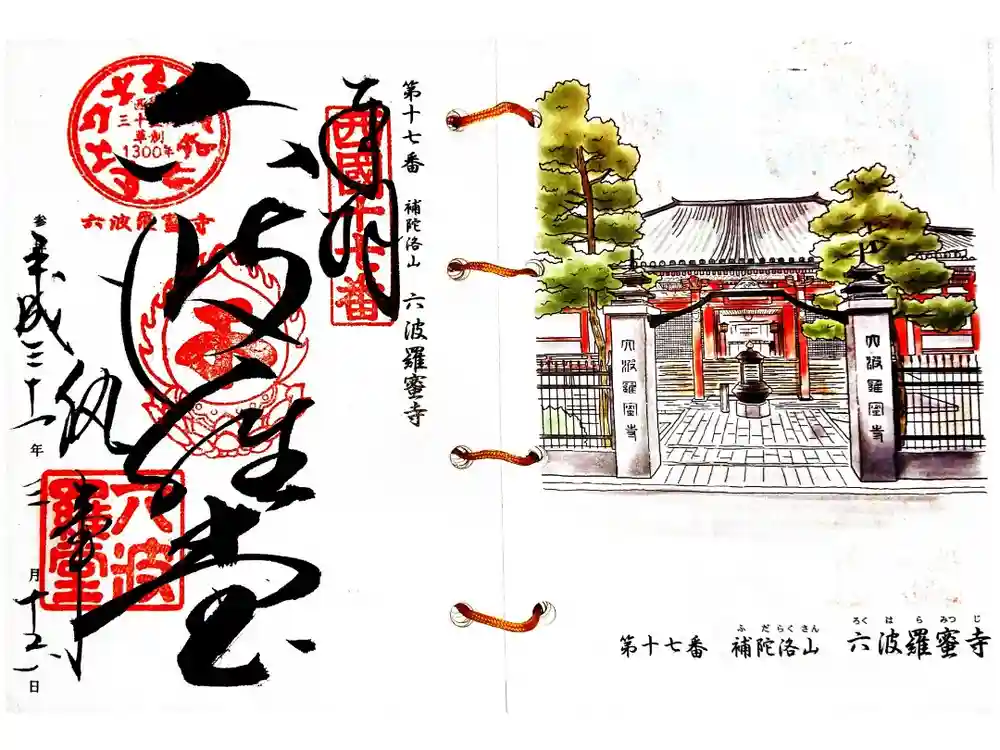 第十七番 補陀洛山 六波羅蜜寺
奉拝
西國十七番
六波羅堂
三十三
草創
1300年
六波羅蜜寺
六波羅堂
平成三十一年二月
日
六波羅蜜寺
六波羅蜜寺
ふだらくさん ろくはらみつじ
第十七番 補陀洛山 六波羅蜜寺